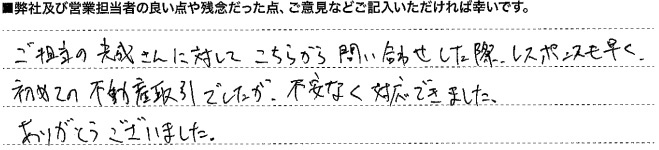 ■弊社及び営業担当者の良い点や残念だった点、ご意見などご記入いただければ幸いです。
ご担当の 光成さんに対して こちらから 問い合わせした際、レスポンスも早く、
初めての 不動産取引でしたが、不安なく 対応できました。
ありがとうございました。